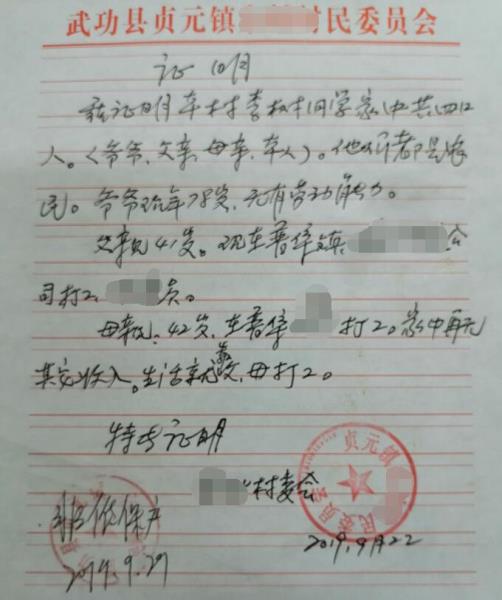 武功县贞元镇 村民委员会
证明
兹证明本村李 同学家中共四口
人。(爷爷、父亲、母亲、本人)。他们都是农
民。爷爷现年78岁,无有劳动能力。
父亲现41岁。现在普集镇 公
司打工 员。
母亲现42岁,在普集 打工。家中再无
其它收入。生活来源靠父、母打工。
特此证明
村委会
贞元镇
民委员会
2019.9月22
非低保户
2019.9.29